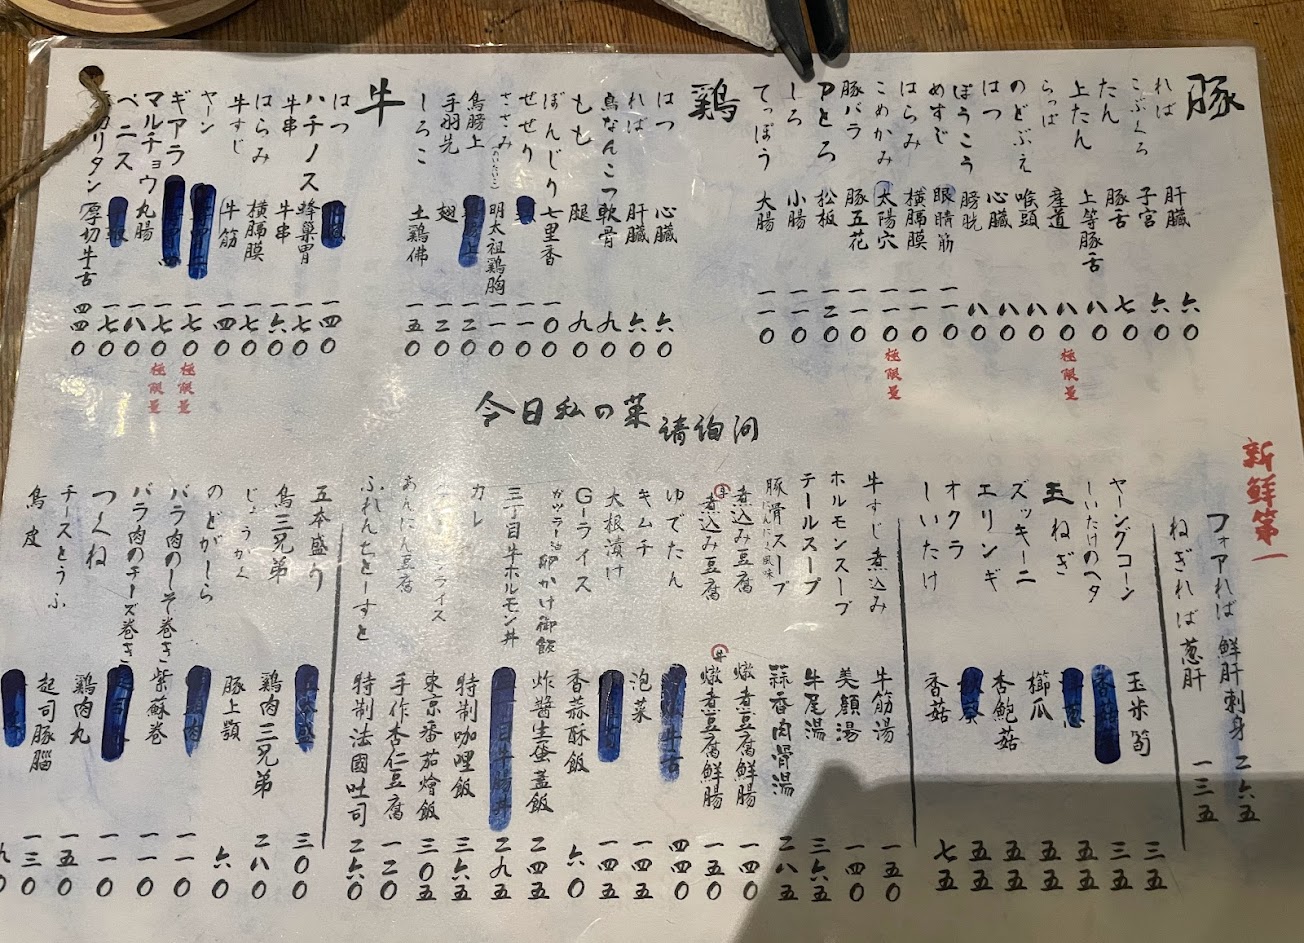 豚
れば 肝臓 六〇
こぶくろ 子宮 六〇
たん 豚舌 七〇
上たん 上等豚舌 八〇
らっぱ 産道 八〇 極限量
のどぶえ 喉頭 八〇
はつ 心臓 八〇
ぼうこう 膀胱 八〇
めすじ 眼睛筋 一一〇
はらみ 横膈膜 一一〇
こめかみ 太陽穴 一一〇 極限量
豚バラ 豚五花 一一〇
Pとろ 松板 一二〇
しろ 小腸 一一〇
てっぽう 大腸 一一〇
鶏
はつ 心臓 六〇
れば 肝臓 六〇
鳥なんこつ 軟骨 九〇
もも 腿 九〇
ぼんじり 七里香 一〇〇
せせり 一一〇
ささみ(めいたいこ) 明太祖鶏胸 一一〇
鳥膀上 一二〇
手羽先 翅 一二〇
しろこ 土鶏佛 一五〇
牛
はつ 一四〇
ハチノス 蜂巣胃 一七〇
牛串 牛串 一六〇
はらみ 横膈膜 一七〇
牛すじ 牛筋 一四〇
ヤーン 一七〇 極限量
ギアラ 一七〇 極限量
マルチョウ 丸腸 一八〇
ペニス 一七〇
リタン 厚切牛舌 四四〇
今日私の菜 請詢问
新鮮第一
フォアれば 鮮肝刺身 二六五
ねぎれば 葱肝 一三五
ヤーングコーン 玉米筍 三五
しいたけのヘタ 三五
玉ねぎ 五五
ズッキーニ 櫛瓜 五五
エリンギ 杏鮑菇 五五
オクラ 五五
しいたけ 香菇 七五
牛すじ煮込み 牛筋湯 一五〇
ホルモンスープ 美顔湯 一四〇
テールスープ 牛尾湯 三六五
豚骨スープ にんにく風味 蒜香肉骨湯 二八五
煮込み豆腐 燉煮豆腐鮮腸 一四〇
牛 煮込み豆腐 牛 燉煮豆腐鮮腸 一五〇
ゆでたん 牛舌 四四〇
キムチ 泡菜 一四五
大根漬け 一四五
Gーライス 香蒜酥飯 六〇
がツラー油 卵かけ御飯 炸醬生蛋蓋飯 二四五
三丁目牛ホルモン丼 三丁目牛腸丼 二九五
カレー 特制咖哩飯 三六五
ライス 東京番茄燴飯 三〇五
あんにん豆腐 手作杏仁豆腐 一二〇
ふれんちとーすと 特制法國吐司 二六〇
五本盛り 三〇〇
鳥三兄弟 鶏肉三兄弟 二八〇
じょうがく 豚上顎 六〇
のどがーら 一一〇
バラ肉のしそ巻き 紫蘇卷 一一〇
バラ肉のチーズ巻き 一一〇
つくね 鶏肉丸 一五〇
チーズとうふ 起司豚腦 一三〇
鳥皮 九〇